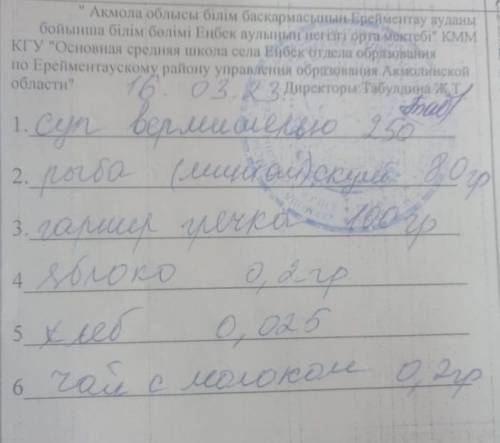 " Акмола облысы білім басқармасының Ерейментау ауданы
бойынша білім бөлімі Еңбек ауылының негізгі орта мектебі" КММ
КГУ "Основная средняя школа села Енбек отдела образования
по Ерейментаускому району управления образования Акмолинской
области" 16. 03.23 Директоры: Табулдина Ж.Т.
1. суп вермишелью 250
2. рыба 80 гр
3. гарнир гречка 100 гр
4 яблоко 0,2 гр
5 хлеб 0,025
6 чай с молоком 0,2 гр